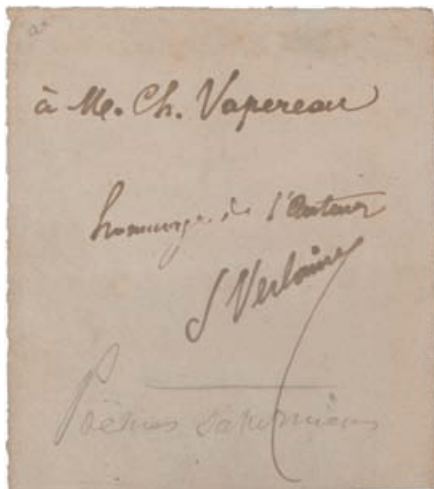 à M. Ch. Vapereau
hommage de l'Auteur
P Verlaine
Poèmes saturniens